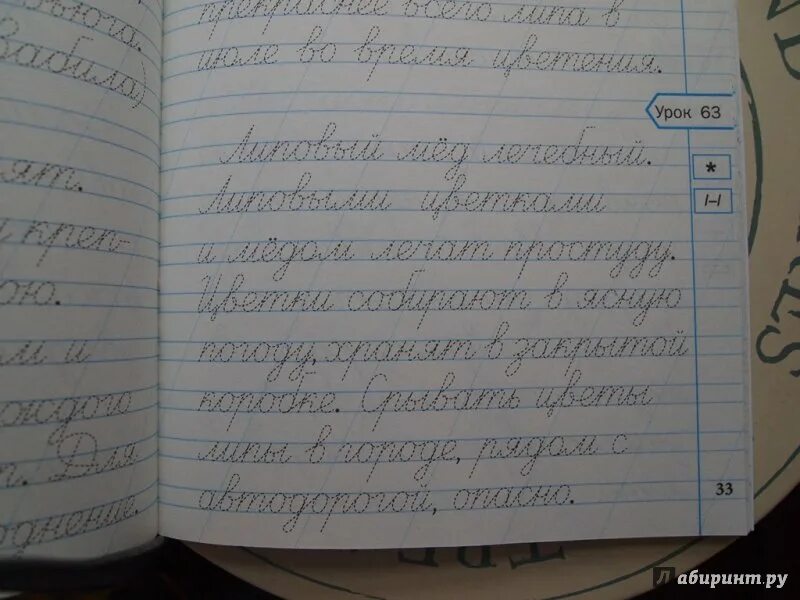 вьюга.
Забила)
ят.
и креп-
ою.
м и
каждого
т. Для
однение.
прекраснее всего липа в
июле во время цветения.
Урок 63
Липовый мёд лечебный.
*
Липовыми цветками
и мёдом лечат простуду.
Цветки собирают в ясную
погоду, хранят в закрытой
коробке. Срывать цветы
липы в городе, рядом с
автодорогой, опасно.
33
Лабиринт.ру